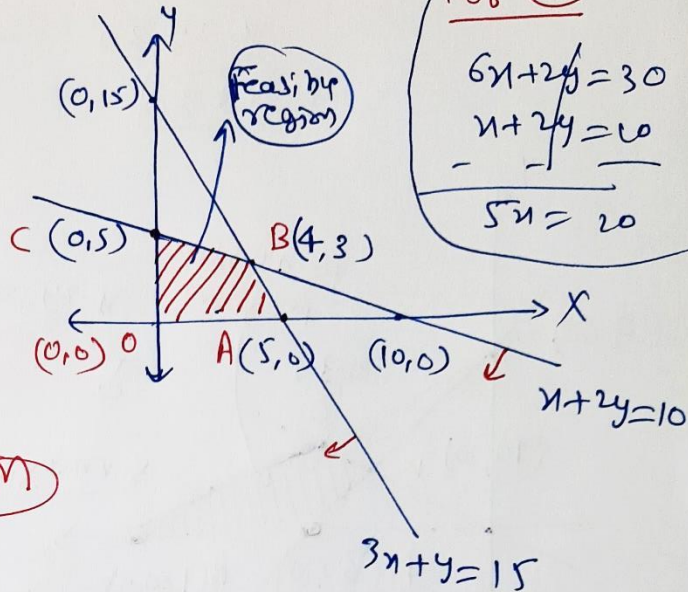 y
(0,15)
Feasible
region
6x+2y=30
x+2y=10
- - -
5x= 20
C (0,5)
B(4,3)
X
(0,0) O
A(5,0)
(10,0)
x+2y=10
3x+y=15